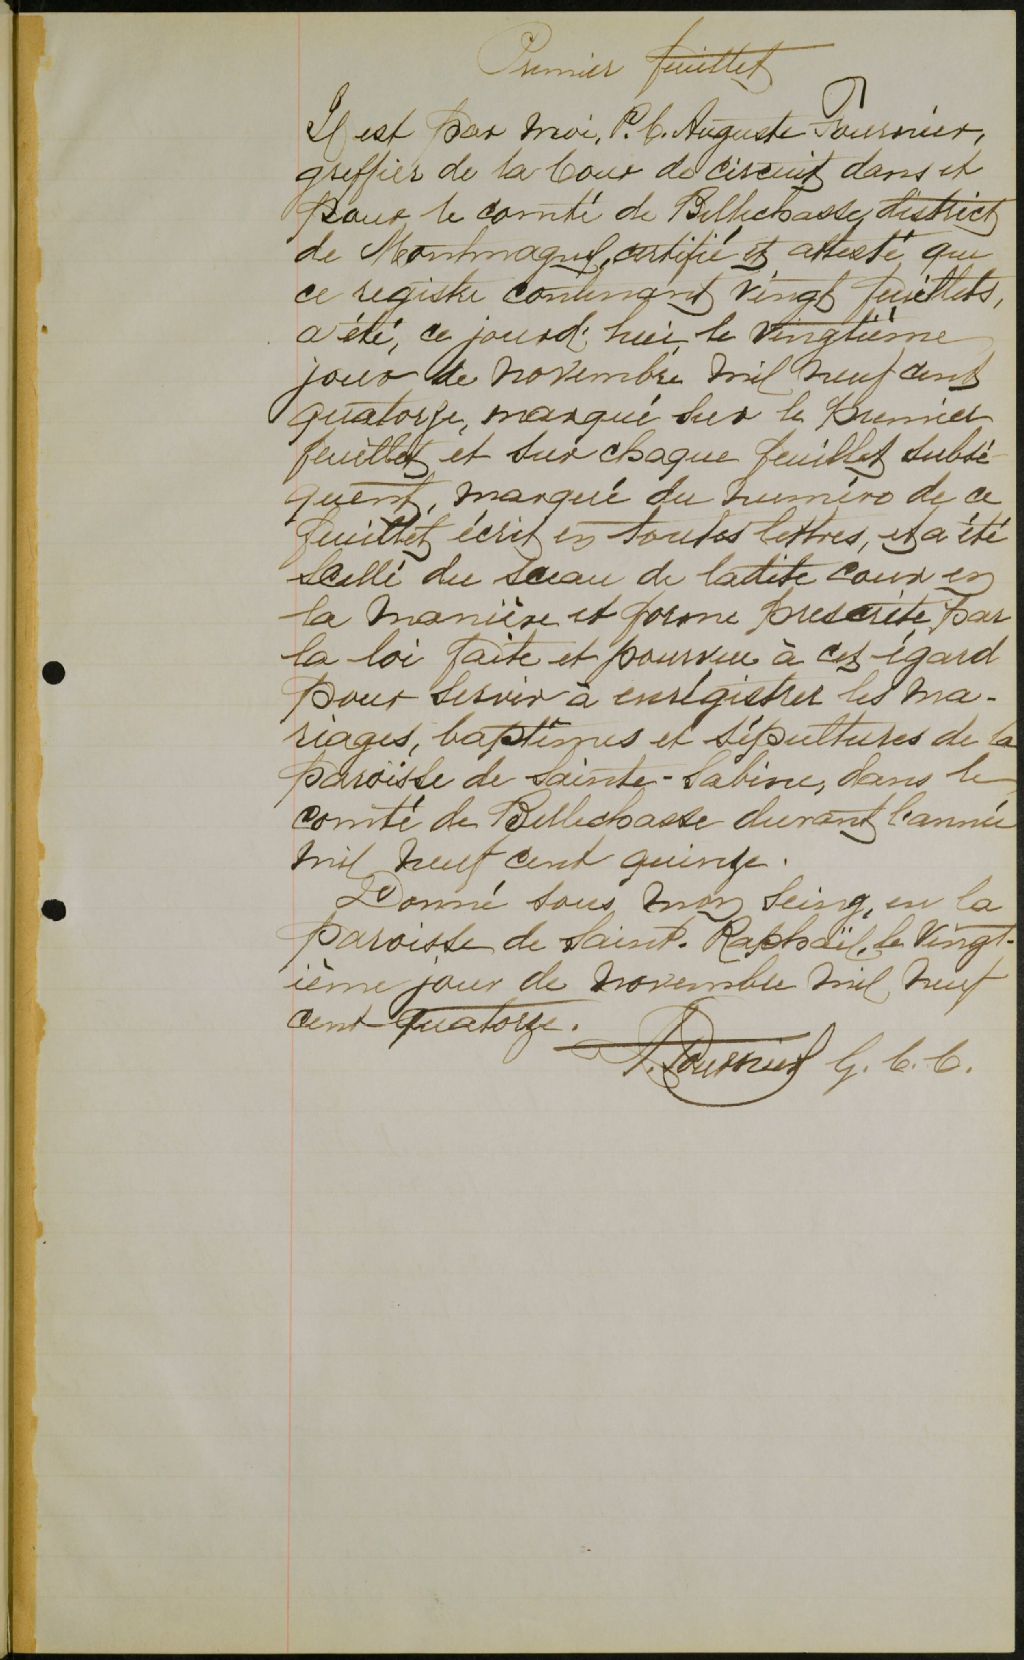 Premier feuillet
Il est par moi, P. C. Auguste Fournier,
greffier de la Cour de circuit dans et
pour le comté de Bellechasse, district
de Montmagny, certifié et attesté que
ce registre contenant vingt feuillets,
a été, ce jourd'hui le vingtième
jour de novembre mil neuf cent
quatorze, marqué sur le premier
feuillet et sur chaque feuillet subsé-
quent, marqué du numéro de ce
feuillet écrit en toutes lettres, et a été
scellé du sceau de ladite cour en
la manière et forme prescrite par
la loi faite et pourvue à cet égard
pour servir à enrégistrer les ma-
riages, baptêmes et sépultures de la
paroisse de Sainte-Sabine, dans le
comté de Bellechasse durant l'année
mil neuf cent quinze.
Donné sous mon seing, en la
paroisse de Saint-Raphaël, le vingt-
ième jour de novembre mil neuf
cent-quatorze.
A. Fournier G. C. C.